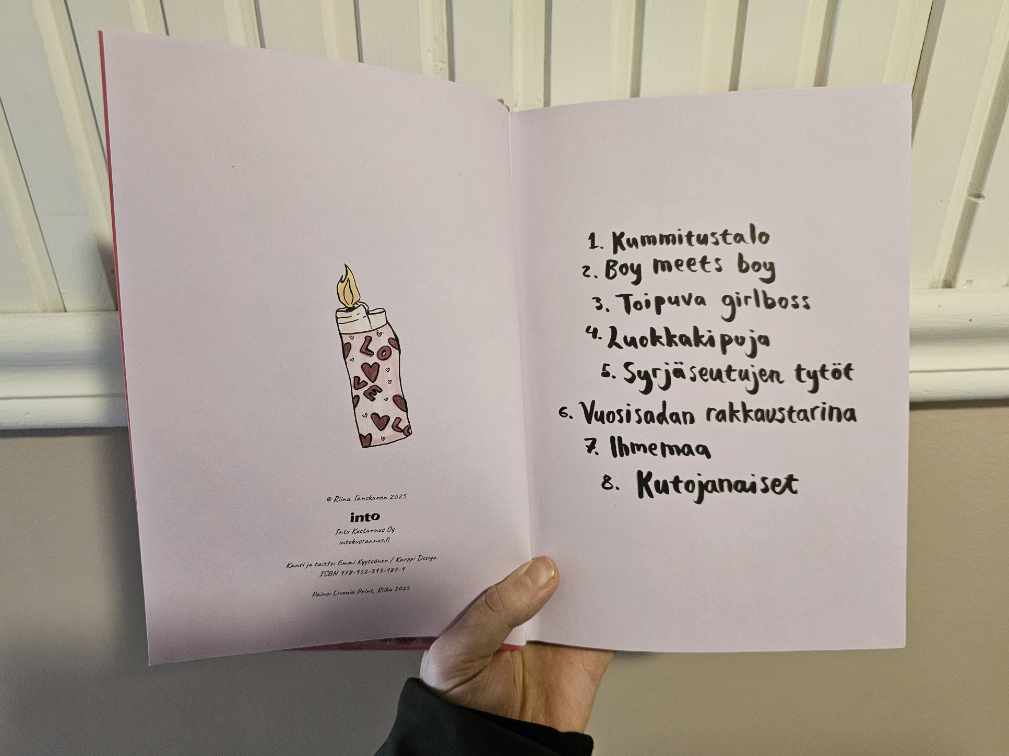 LO
VE
© Riina Tanskanen 2025
into
Into Kustannus Oy
intokustannus.fi
Kansi ja taitto: Emmi Kyytsönen / Karppi Design
ISBN
Paino: Livonia Print, Riika 2025
1. Kummitustalo
2. Boy meets boy
3. Toipuva girlboss
4. Luokkakipuja
5. Syrjäseutujen tytöt
6. Vuosisadan rakkaustarina
7. Ihmemaa
8. Kutojanaiset